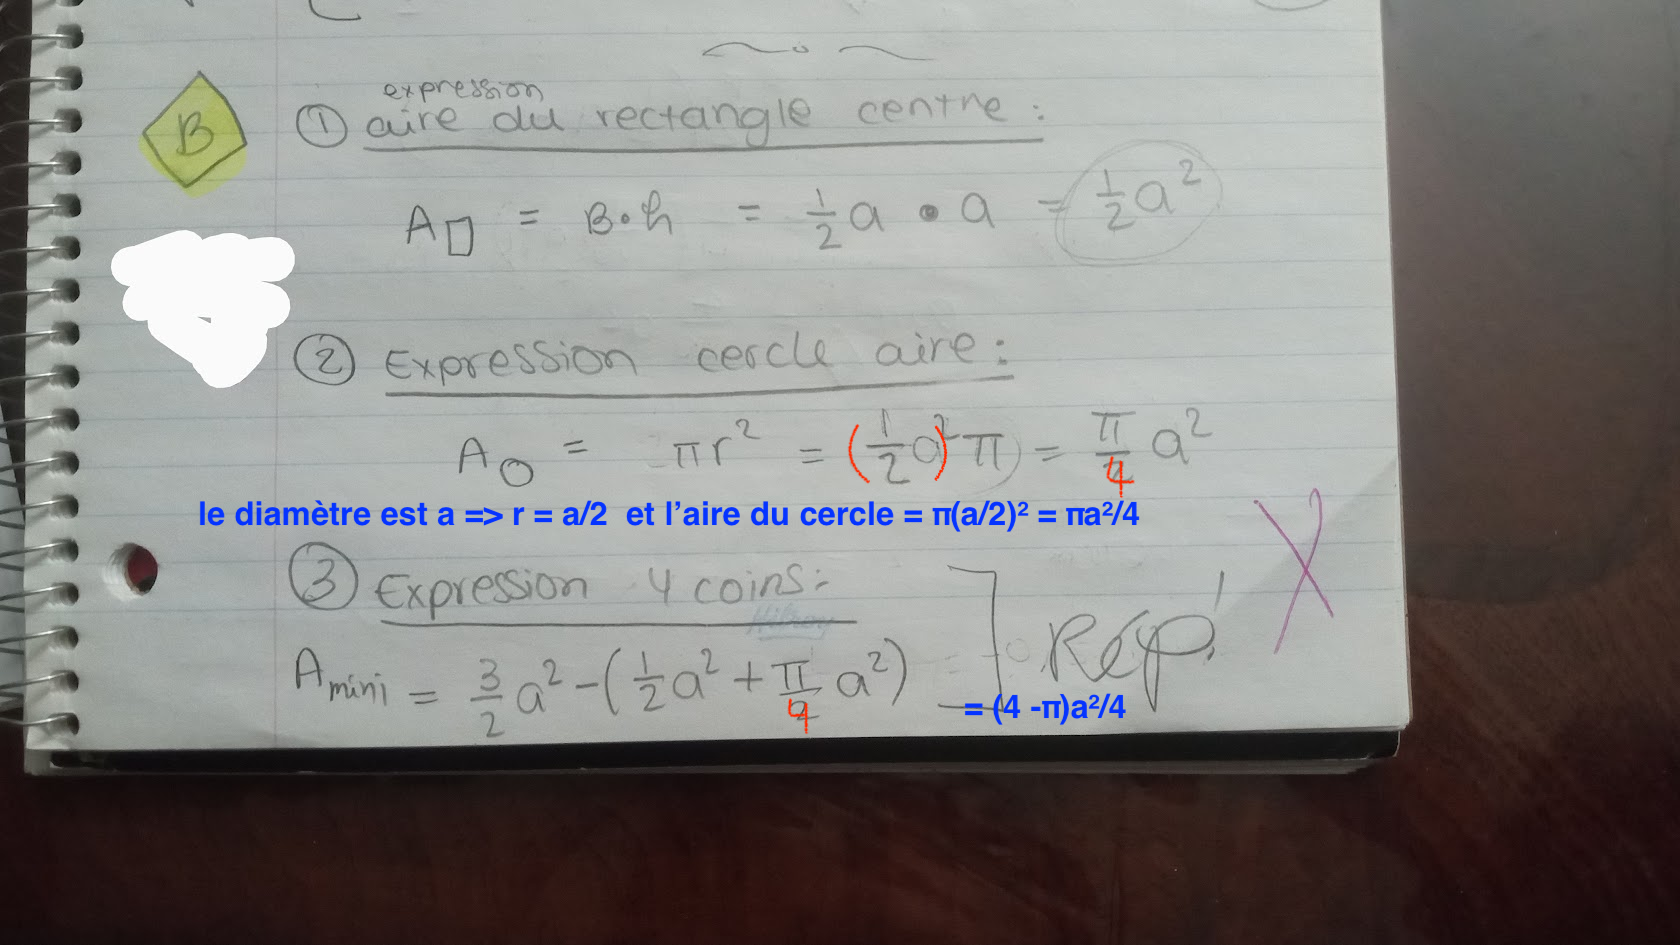 B
expression
① aire du rectangle centre :
A▯ = B·h = 1/2 a · a = 1/2 a²
② Expression cercle aire :
A○ = πr² = (1/2 a)² π = π/4 a²
le diamètre est a => r = a/2 et l’aire du cercle = π(a/2)² = πa²/4
③ Expression 4 coins :
Hilroy
A mini = 3/2 a² - (1/2 a² + π/4 a²) Rép!
= (4 -π)a²/4